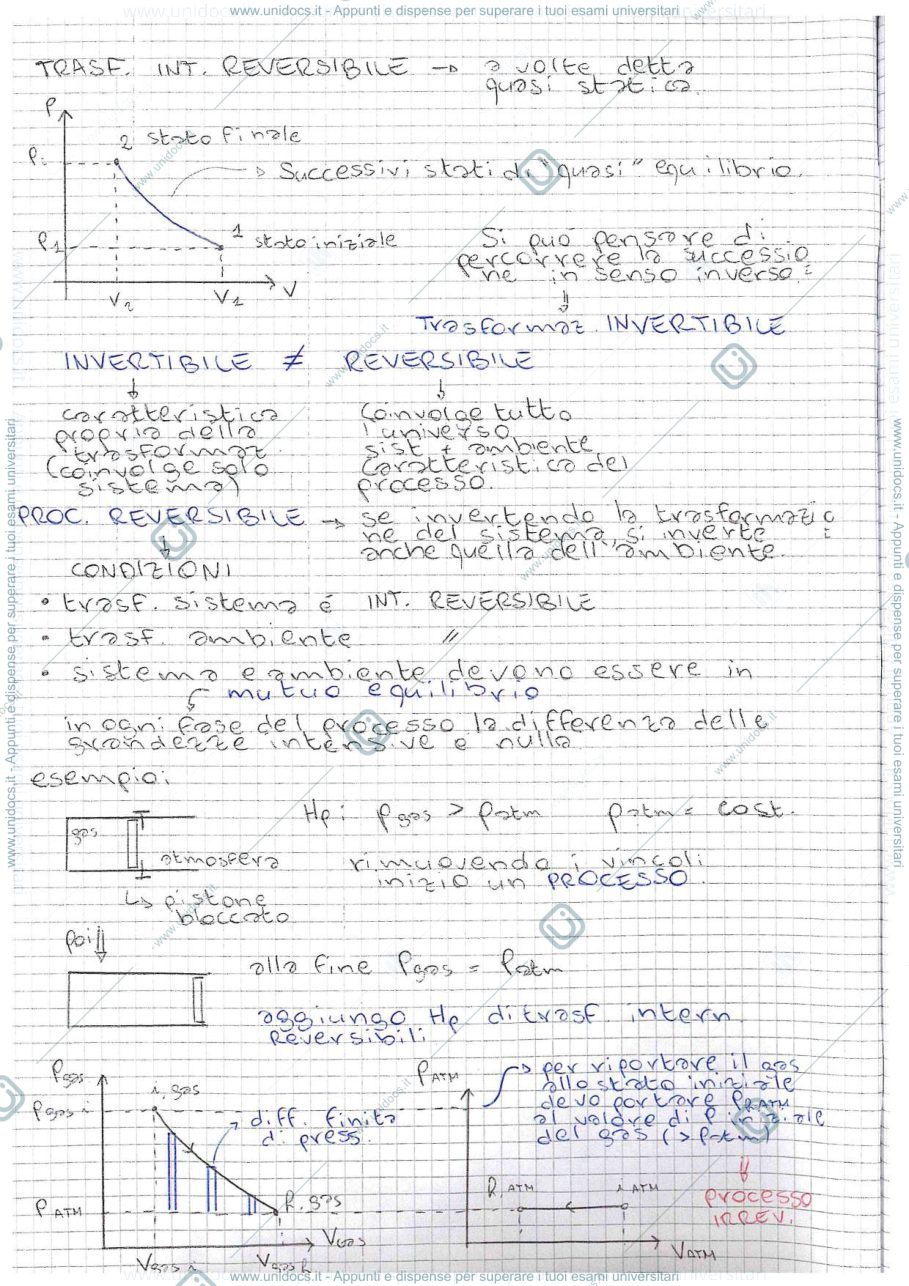 www.unidocs.it - Appunti e dispense per superare i tuoi esami universitari
TRASF. INT. REVERSIBILE → a volte detta
quasi statica
P
2 stato finale
Successivi stati di "quasi" equilibrio.
P1
1 stato iniziale
V2
V1
V
Si può pensare di
percorrere la successio
ne in senso inverso:
Trasformaz. INVERTIBILE
INVERTIBILE ≠ REVERSIBILE
caratteristica
propria della
trasformaz
(coinvolge solo
sistema)
Coinvolge tutto
l'universo
sist + ambiente
Caratteristica del
processo.
PROC. REVERSIBILE → se invertendo la trasformazio
ne del sistema, si inverte
anche quella dell'ambiente.
CONDIZIONI
• trasf. sistema é INT. REVERSIBILE
• trasf. ambiente //
• sistema e ambiente devono essere in
mutuo equilibrio
in ogni fase del processo la differenza delle
grandezze intensive è nulla
esempio:
gas
atmosfera
↳ pistone
bloccato
Hp: pgas > patm patm = cost.
rimuovendo i vincoli
inizio un PROCESSO
poi
alla fine Pgas = Patm
aggiungo Hp di trasf intern
Reversibili
Pgas
Pgas i
i, gas
diff. finita
di press.
PATM
f. gas
Vgas
Vgas i
Vgas f
PATM
per riportare il gas
allo stato iniziale
devo portare PATM
al valore di P iniziale
del gas (> Patm)
processo
IRREV.
f. ATM
i ATM
VATM
www.unidocs.it - Appunti e dispense per superare i tuoi esami universitari